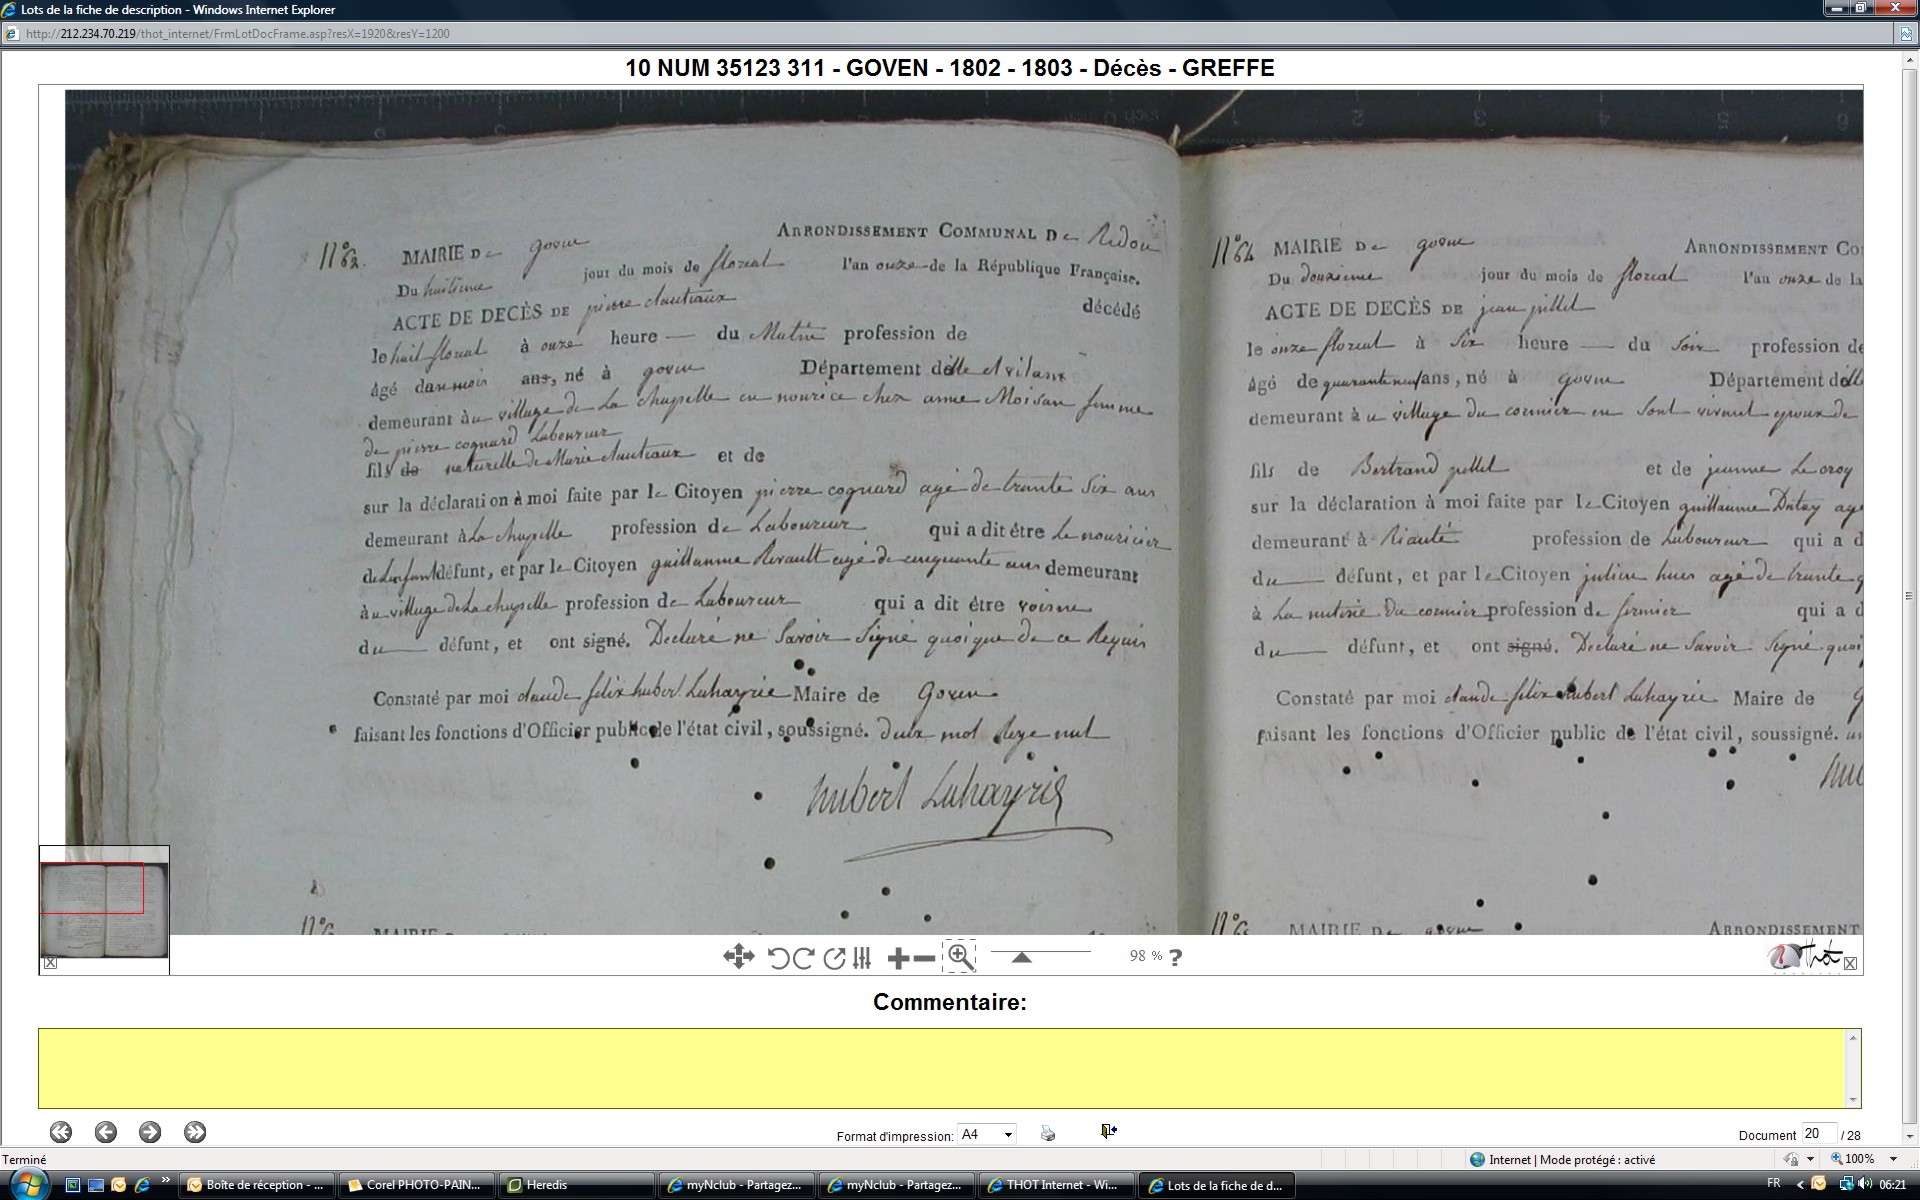 Lots de la fiche de description - Windows Internet Explorer
http://212.234.70.219/thot_internet/FrmLotDocFrame.asp?resX=1920&resY=1200
10 NUM 35123 311 - GOVEN - 1802 - 1803 - Décès - GREFFE
ARRONDISSEMENT COMMUNAL De Redon
N° 62. MAIRIE De goven
Du huitieme jour du mois de floreal l'an onze de la République Française.
ACTE DE DECÈS DE pierre décédé
le huit floreal à onze heure du Matin profession de
âgé ans, né à goven Département de
demeurant au village de La chapelle en nourice chez anne Moisan femme
de pierre cognard Laboureur
fils de naturelle de Marie et de
sur la déclaration à moi faite par le Citoyen pierre cognard agé de trante Six ans
demeurant à La chapelle profession de Laboureur qui a dit être Le nouricier
de Lenfant défunt, et par le Citoyen guillaume Revault agé de cinquante ans demeurant
à au village de La chapelle profession de Laboureur qui a dit être voisin
du défunt, et ont signé. Declaré ne Savoir Signé quoique de ce Requis
Constaté par moi claude felix hubert Luhayrie Maire de Goven
faisant les fonctions d'Officier public de l'état civil, soussigné. Deux mot Reye nul
hubert Luhayrie
N° MAIRIE
N° 64 MAIRIE De goven ARRONDISSEMENT CO
Du douzieme jour du mois de floreal l'an onze de la
ACTE DE DECÈS DE jean pillet
le onze floreal à Six heure du Soir profession de
âgé de quarante neuf ans, né à goven Département de
demeurant à u village du cormier en Sont vivant epoux de
fils de Bertrand pillet et de jeanne Le
sur la déclaration à moi faite par le Citoyen guillaume agé
demeurant à profession de Laboureur qui a d
du défunt, et par le Citoyen julien agé de trante
à La du cormier profession de fermier qui a d
du défunt, et ont signé. Declaré ne Savoir Signé quoi
Constaté par moi claude felix hubert Luhayrie Maire de G
faisant les fonctions d'Officier public de l'état civil, soussigné. un
hu
N° MAIRIE De goven ARRONDISSEMENT
98 % ?
Thot
Commentaire:
Format d'impression: A4
Document 20 / 28
Terminé
Internet | Mode protégé : activé
100%
Boîte de réception - ...
Corel PHOTO-PAIN...
Heredis
myNclub - Partagez...
myNclub - Partagez...
THOT Internet - Wi...
Lots de la fiche de d...
FR
06:21